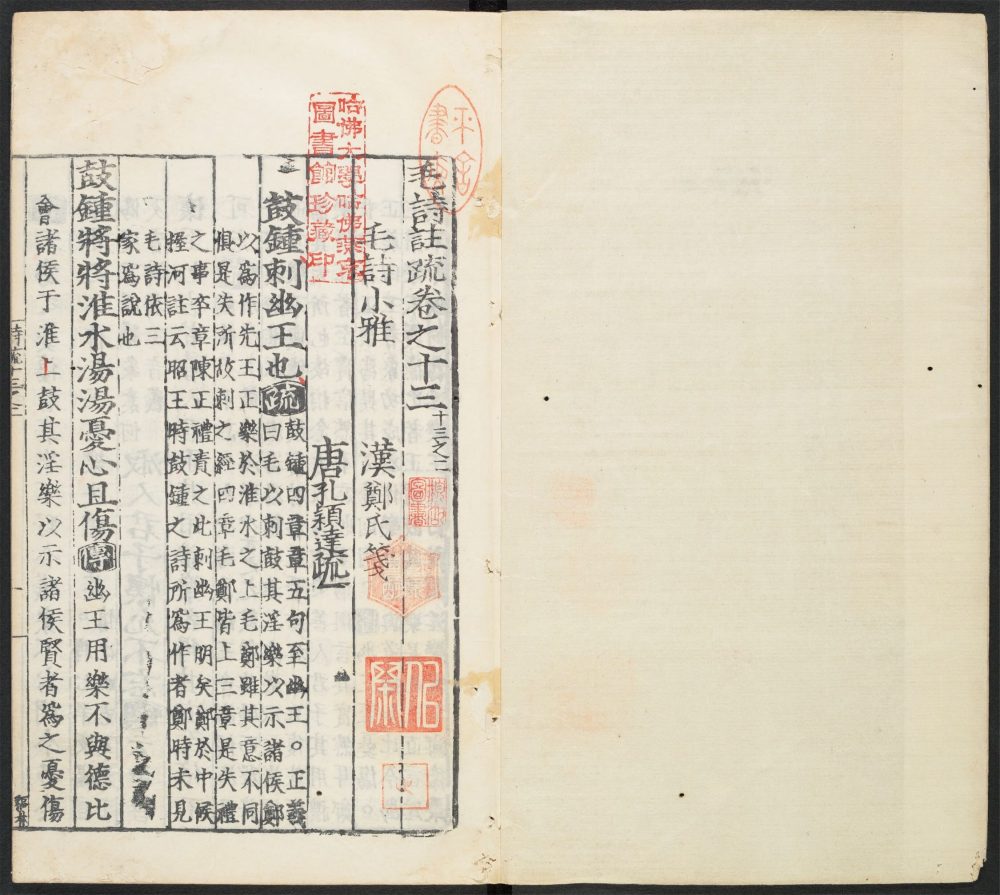 毛詩註疏卷之十三 十三之二
毛詩小雅 漢鄭氏箋
唐孔穎達疏
鼓鍾刺幽王也疏鼓鍾四章章五句至幽王○正義
曰毛以刺鼓其淫樂以示諸侯鄭
以爲作先王正樂於淮水之上毛鄭雖其意不同
俱是失所故刺之經四章毛鄭皆上三章是失禮
之事卒章陳正禮責之此刺幽王明矣鄭於中候
握河註云昭王時鼓鍾之詩所爲作者鄭時未見
毛詩依三
家爲說也
鼓鍾將將淮水湯湯憂心且傷幽王用樂不與德比
會諸侯于淮上鼓其淫樂以示諸侯賢者爲之憂傷
詩疏十三之二
哈佛大學哈佛燕京
圖書館珍藏印